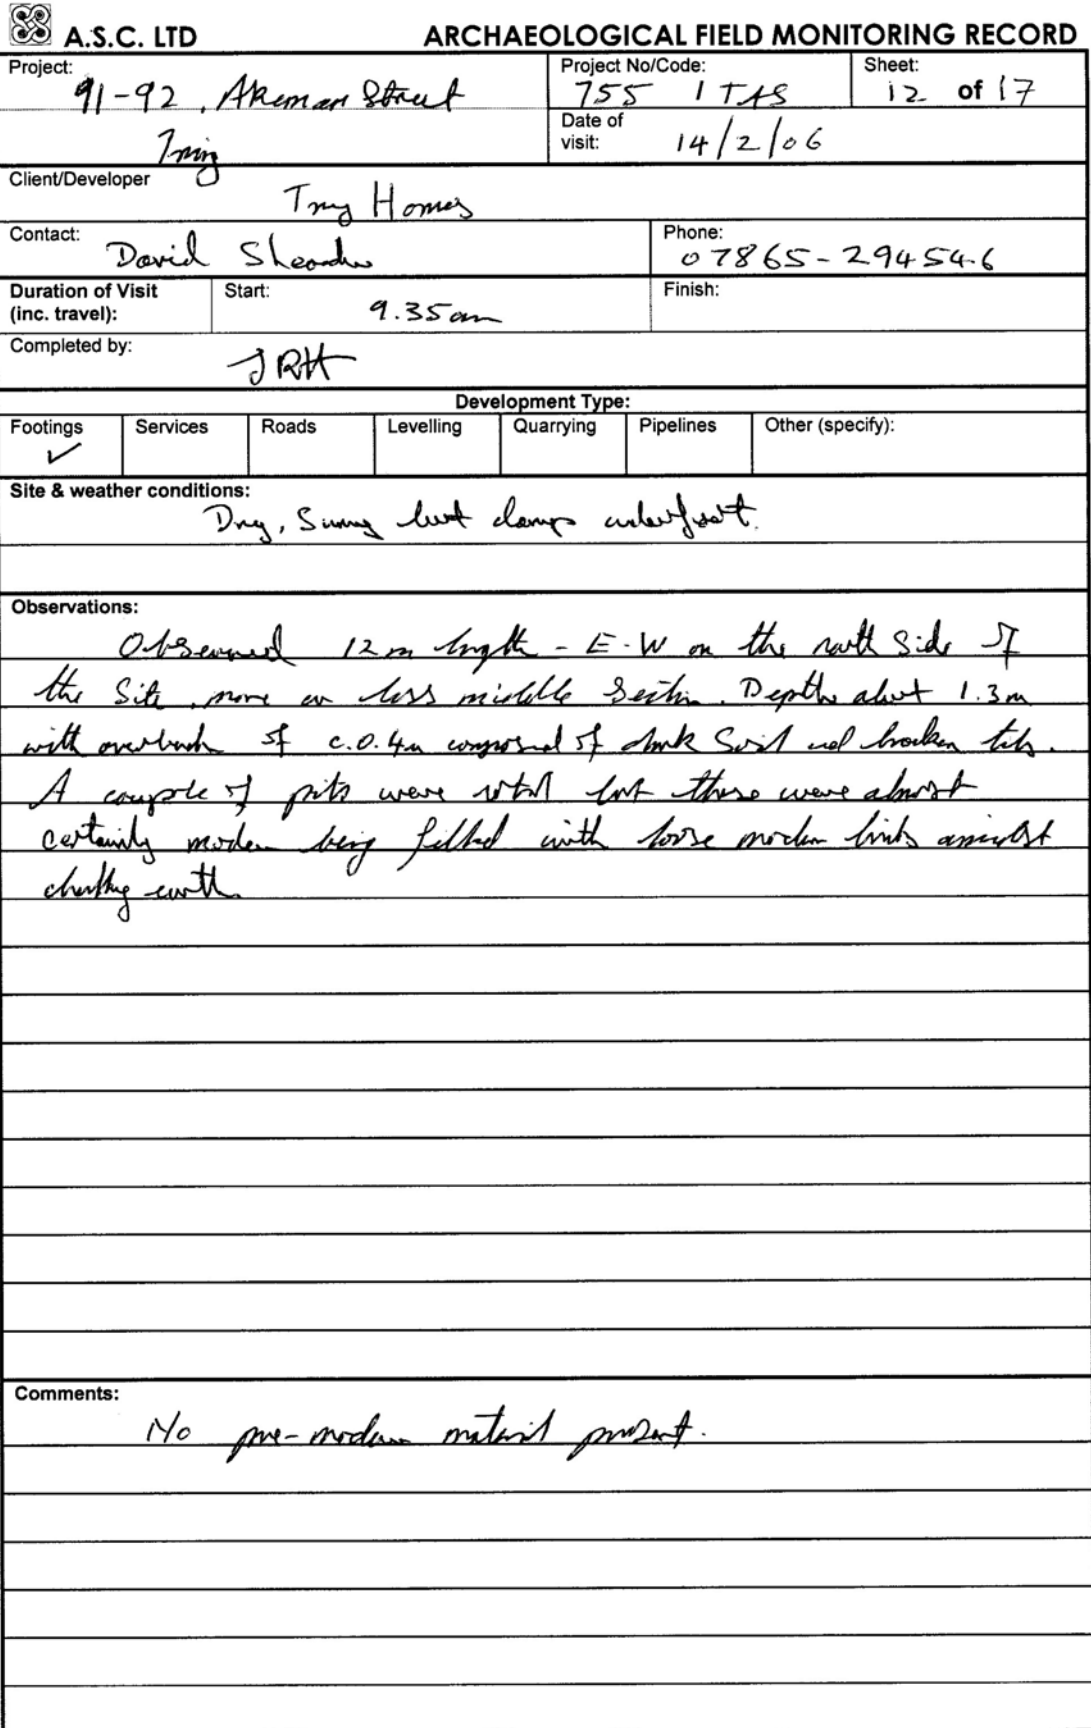 A.S.C. LTD ARCHAEOLOGICAL FIELD MONITORING RECORD
Project: 91-92, Akeman Street
Tring
Project No/Code: 755 / TAS
Sheet: 12 of 17
Date of visit: 14/2/06
Client/Developer Tring Homes
Contact: David
Phone: 07865-294546
Duration of Visit (inc. travel):
Start: 9.35am
Finish:
Completed by: JRH
Development Type:
Footings ✓ Services Roads Levelling Quarrying Pipelines Other (specify):
Site & weather conditions:
Dry, Sunny but damp underfoot.
Observations:
Observed 12m length - E-W on the side of
the Site, more or less middle Section. Depth about 1.3m
with overburden of c.0.4m composed of dark Soil and broken tile.
A couple of pits were noted but these were almost
certainly modern being filled with loose modern bricks amidst
chalky earth.
Comments:
No pre-modern material present.